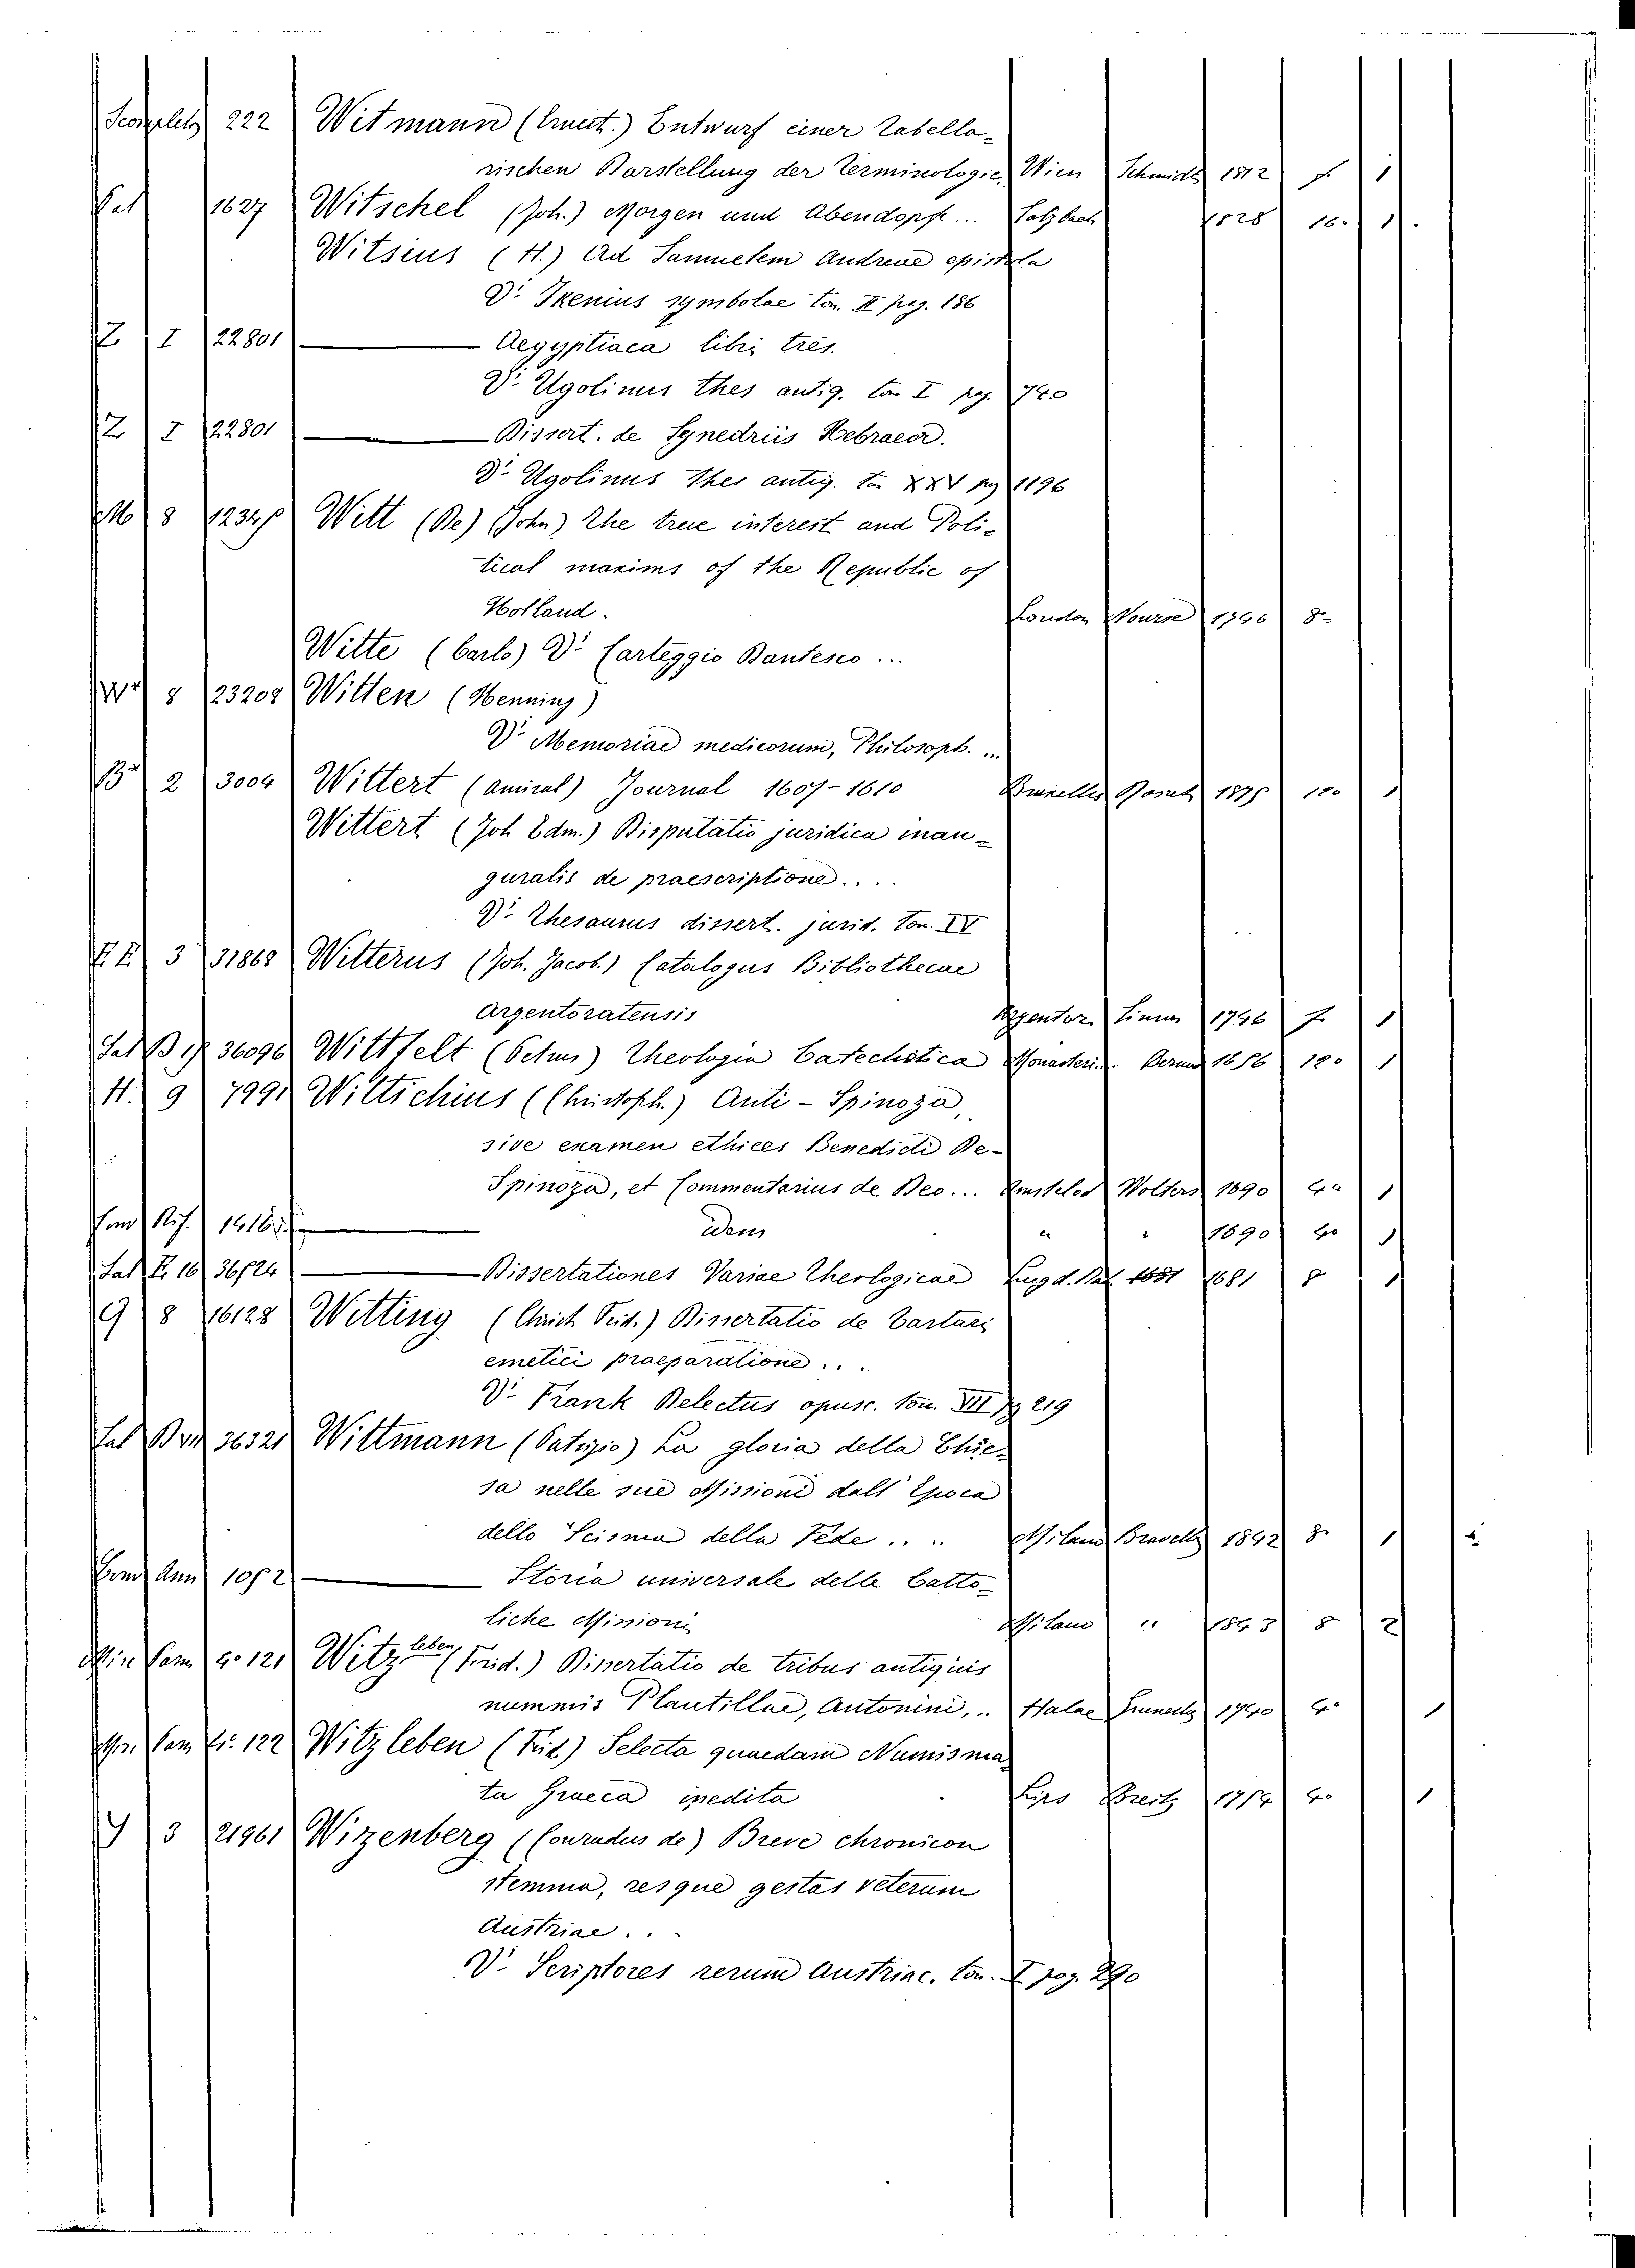 222 Witmann (Ernest.) Entwurf einer Tabella-
rischen Darstellung der Terminologie, Wien Schmidt 1812 1
Sal 1627 Witschel (Joh.) Morgen und Abendopfr... Solzbach 1828 16. 1.
Witsius (H.) Ad Samuelem Andreae epistola
V. Ikenius symbolae tom. II pag. 186
Z I 22801 ——— Aegyptiaca libri tres.
V. Ugolinus thes antiq. tom I pag. 740
Z I 22801 ——— Dissert. de Synedriis Hebraeor.
V. Ugolinus Thes antiq. tom XXV pag 1196
M 8 12345 Witt (De) (John) The true interest and Poli-
tical maxims of the Republic of
Holland. London Nourse 1746 8°
Witte (Carlo) V. Carteggio Dantesco ...
W 8 23208 Witten (Henning)
V. Memoriae medicorum, Philosoph. ...
B 2 3004 Wittert (Amiral) Journal 1607-1610 Bruxelles 1875 12° 1
Wittert (Joh Edm.) Disputatio juridica inau-
guralis de praescriptione....
V. Thesaurus dissert. jurid. tom. IV
3 31868 Witterus (Joh. Jacob.) Catalogus Bibliothecae
Argentoratensis Argentor. 1746 1
Sal B 36096 Wittfelt (Petrus) Theologia Catechetica Monasterii. 1656 12° 1
H. 9 7991 Wittichius (Christoph.) Anti-Spinoza,
sive examen ethices Benedicti De-
Spinoza, et Commentarius de Deo... Amstelod Wolters 1690 4° 1
Rif. 14165 ——— idem " " 1690 4° 1
Sal F. 16 36524 ——— Dissertationes Variae Theologicae Lugd. Bat 1681 1681 8 1
G 8 16128 Witting (Christ Frid.) Dissertatio de Tartari
emetici praeparatione....
V. Frank Delectus opusc. tom. VII pg 219
Sal 36321 Wittmann (Patrizio) La gloria della Chie-
sa nelle sue Missioni dall' Epoca
dello Scisma della Fede.... Milano 1842 8° 1
Ann 1052 ——— Storia universale delle Catto-
liche Missioni Milano " 1843 8 2
Min Com 4° 121 Witzleben (Frid.) Dissertatio de tribus antiquis
nummis Plautillae, Antonini,.. Halae 1740 4° 1
Com 122 Witzleben (Frid) Selecta quaedam Numisma-
ta Graeca inedita Lips Breitz 1754 4° 1
Y 3 21961 Wizenberg (Conradus de) Breve chronicon
stemma, resque gestas veterum
Austriae...
V. Scriptores rerum Austriac. tom. I pog. 290